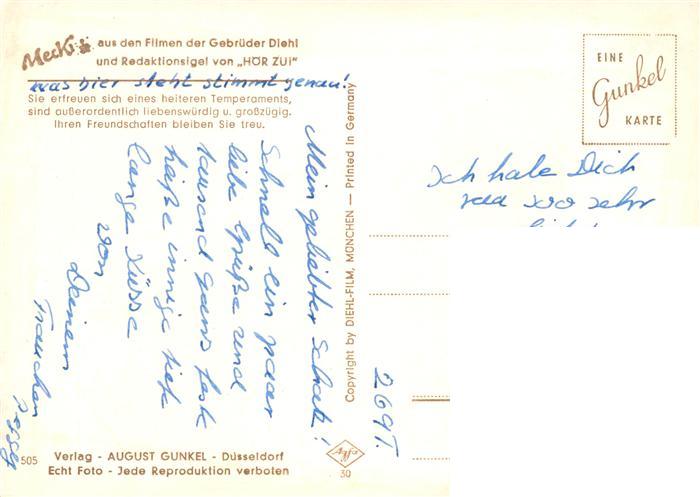 Mecki aus den Filmen der Gebrüder Diehl
und Redaktionsigel von „HÖR ZU!"
was hier steht stimmt genau!
Sie erfreuen sich eines heiteren Temperaments,
sind außerordentlich liebenswürdig u. großzügig.
Ihren Freundschaften bleiben Sie treu.
Mein geliebter Schatz!
Schnell ein paar
liebe Grüße und
tausend ganz feste
heiße innige tiefe
lange Küsse
von
Deinem
Frauchen
505
Verlag - AUGUST GUNKEL - Düsseldorf
Echt Foto - Jede Reproduktion verboten
Copyright by DIEHL-FILM, MÜNCHEN — Printed in Germany
Agfa
30
269T.
EINE
Gunkel
KARTE
Ich habe Dich
sehr